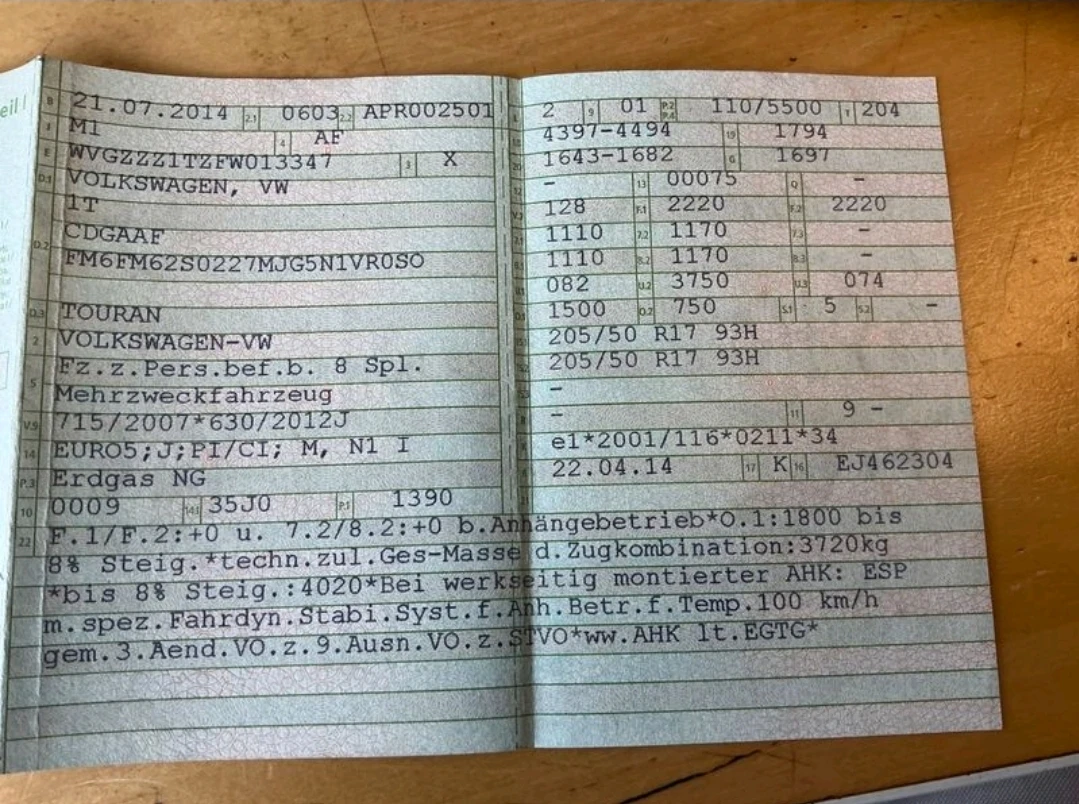 eil I
B 21.07.2014 2.1 0603 2.2 APR002501
J M1 4 AF
E WVGZZZ1TZFW013347 3 X
D.1 VOLKSWAGEN, VW
1T
D.2 CDGAAF
FM6FM62S0227MJG5N1VR0SO
D.3 TOURAN
2 VOLKSWAGEN-VW
5 Fz.z.Pers.bef.b. 8 Spl.
Mehrzweckfahrzeug
V.9 715/2007*630/2012J
14 EURO5;J;PI/CI; M, N1 I
P.3 Erdgas NG
10 0009 14.1 35J0 P.1 1390
L 2 9 01 P.2 P.4 110/5500 T 204
18 4397-4494 19 1794
20 1643-1682 G 1697
12 - 13 00075 Q -
V.7 128 F.1 2220 F.2 2220
7.1 1110 7.2 1170 7.3 -
8.1 1110 8.2 1170 8.3 -
U.1 082 U.2 3750 U.3 074
O.1 1500 O.2 750 S.1 5 S.2 -
15.1 205/50 R17 93H
15.2 205/50 R17 93H
15.3 -
R - 11 9 -
K e1*2001/116*0211*34
6 22.04.14 17 K 16 EJ462304
21
22 F.1/F.2:+0 u. 7.2/8.2:+0 b.Anhängebetrieb*O.1:1800 bis
8% Steig.*techn.zul.Ges-Masse d.Zugkombination:3720kg
*bis 8% Steig.:4020*Bei werkseitig montierter AHK: ESP
m.spez.Fahrdyn.Stabi.Syst.f.Anh.Betr.f.Temp.100 km/h
gem.3.Aend.VO.z.9.Ausn.VO.z.STVO*ww.AHK lt.EGTG*